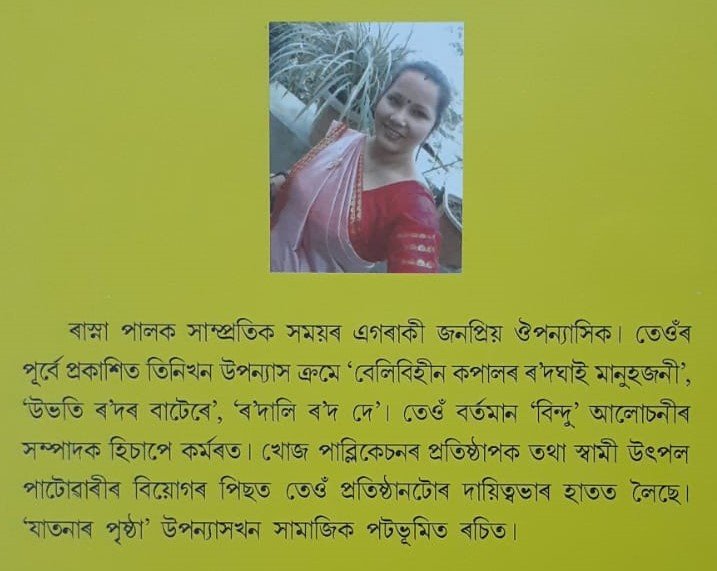 ৰাস্না পালক সাম্প্ৰতিক সময়ৰ এগৰাকী জনপ্ৰিয় ঔপন্যাসিক। তেওঁৰ
পূৰ্বে প্ৰকাশিত তিনিখন উপন্যাস ক্ৰমে ‘বেলিবিহীন কপালৰ ৰ'দঘাই মানুহজনী’,
‘উভতি ৰ'দৰ বাটেৰে’, ‘ৰ'দালি ৰ'দ দে’। তেওঁ বৰ্তমান ‘বিন্দু’ আলোচনীৰ
সম্পাদক হিচাপে কৰ্মৰত। খোজ পাব্লিকেচনৰ প্ৰতিষ্ঠাপক তথা স্বামী উৎপল
পাটোৱাৰীৰ বিয়োগৰ পিছত তেওঁ প্ৰতিষ্ঠানটোৰ দায়িত্বভাৰ হাতত লৈছে।
‘যাতনাৰ পৃষ্ঠা’ উপন্যাসখন সামাজিক পটভূমিত ৰচিত।